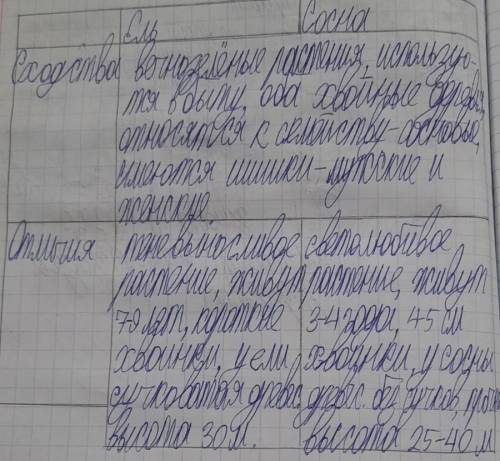 Ель Сосна
Сходства вечнозелёные растения, использую-
тся в быту, оба хвойные деревья,
относятся к семейству-сосновые,
имеются шишки-мужские и
женские.
Отличия теневыносливое светолюбивое
растение, живут растение, живут
7-9 лет, короткие 3-4 года, 45 см
хвоинки, у ели хвоинки, у сосны
сучковатая древес. древес. без сучков,
высота 30 м. высота 25-40 м.